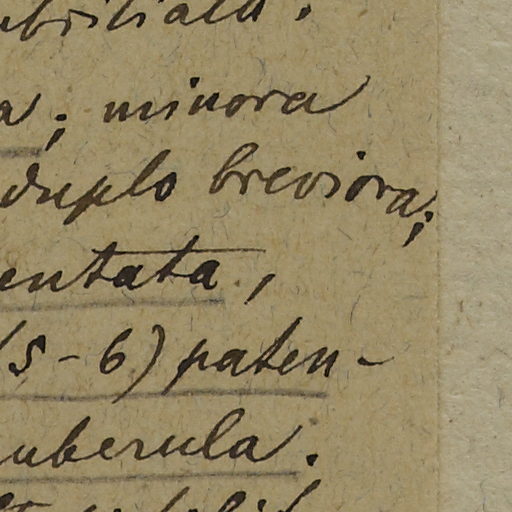 a; minora
duplo breviora;
entata,
(5-6) paten-
uberula.